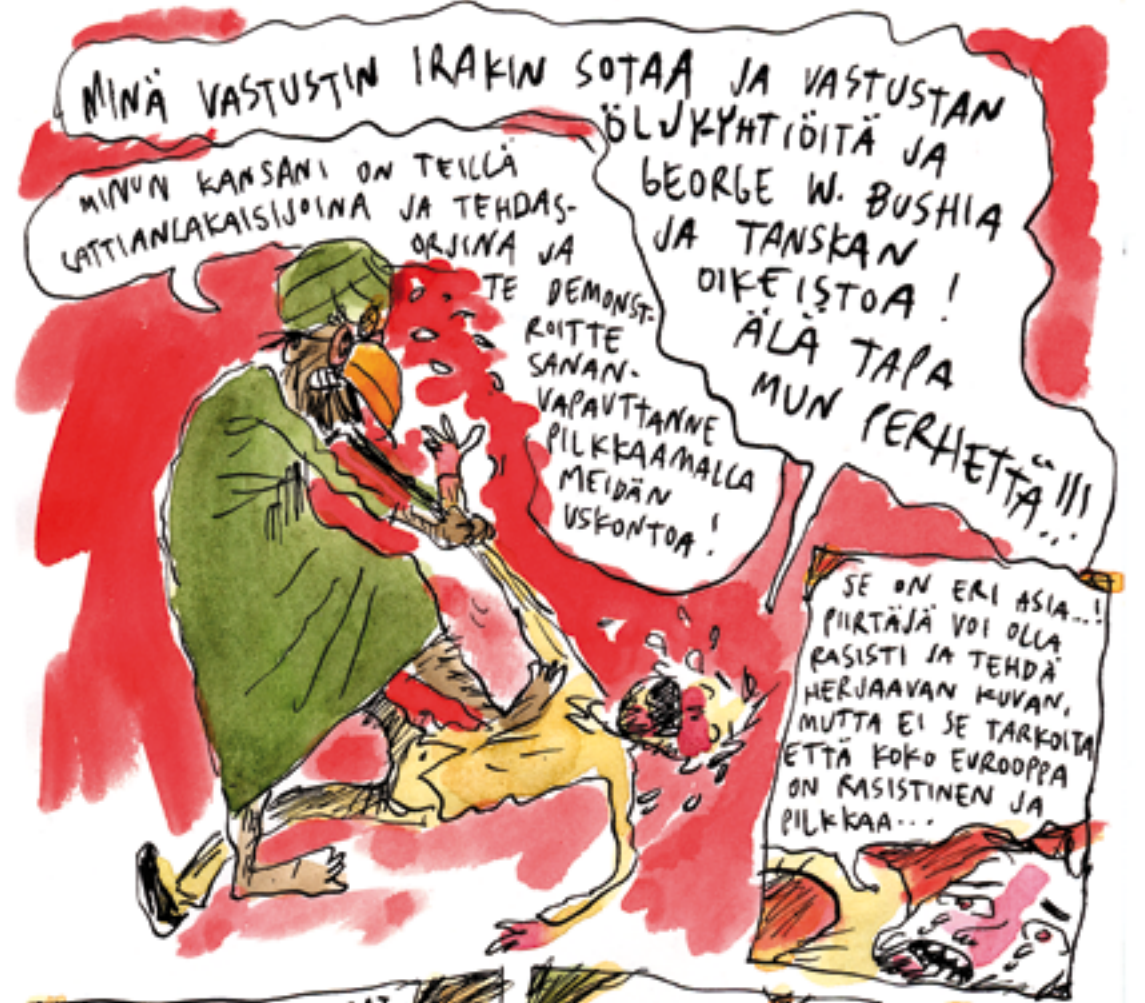 MINÄ VASTUSTIN IRAKIN SOTAA JA VASTUSTAN
ÖLJY-YHTIÖITÄ JA
GEORGE W. BUSHIA
JA TANSKAN
OIKEISTOA!
ÄLÄ TAPA
MUN PERHETTÄ!!!
MINUN KANSANI ON TEILLÄ
LATTIANLAKAISIJOINA JA TEHDAS-
ORJINA JA
TE DEMONST-
ROITTE
SANAN-
VAPAUTTANNE
PILKKAAMALLA
MEIDÄN
USKONTOA!
SE ON ERI ASIA...!
PIIRTÄJÄ VOI OLLA
RASISTI JA TEHDÄ
HERJAAVAN KUVAN,
MUTTA EI SE TARKOITA
ETTÄ KOKO EUROOPPA
ON RASISTINEN JA
PILKKAA...